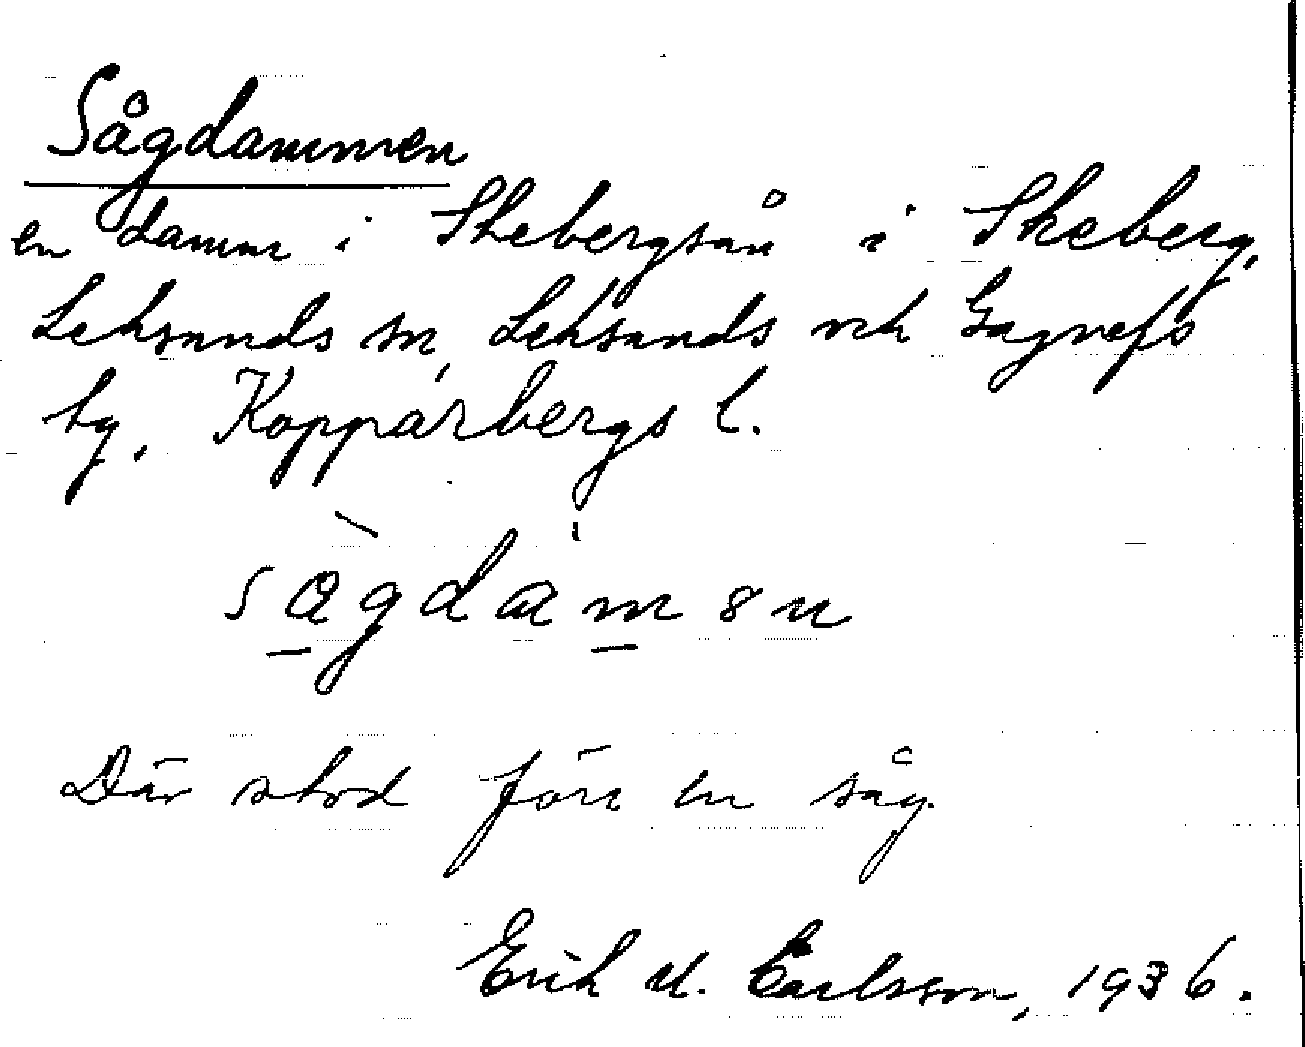 Sågdammen
en damm i Skebergsån i Skeberg,
Leksands sn, Leksands och Gagnefs
tg, Kopparbergs l.
sågdamən
Där stod förr en såg.
Erik M. Carlsson, 1936.